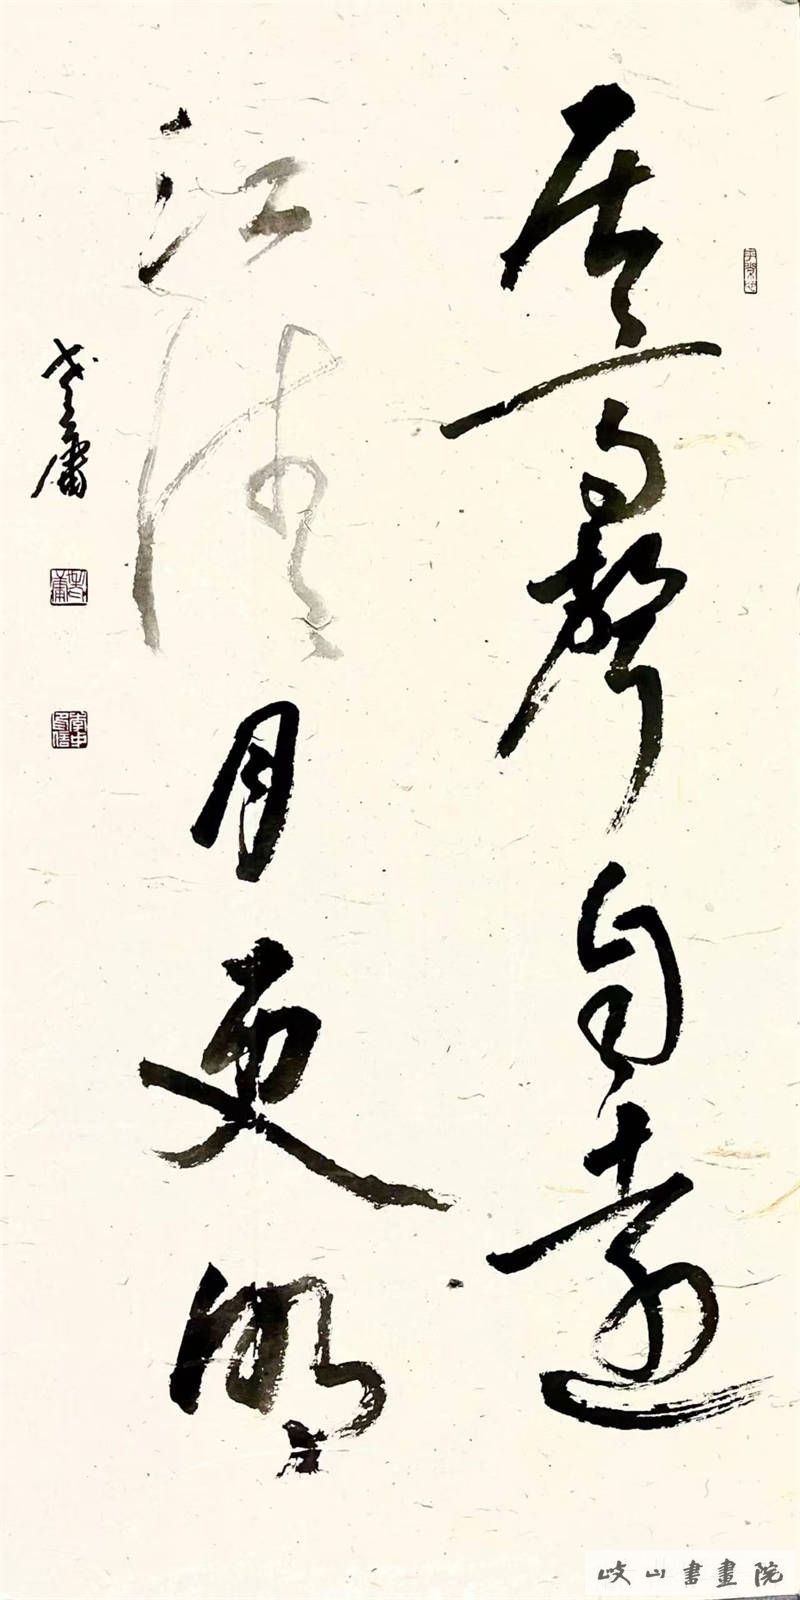 居高聲自遠
江清月更明
岐山書畫院